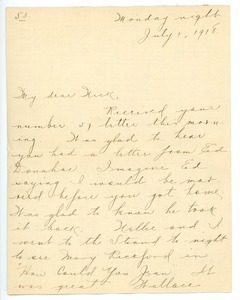 58
Monday night
July 1, 1918
My dear Dick,
Received your
number 57 letter this morn-
ing. Was glad to hear
you had a letter from Ed
Donahue. Imagine Ed
saying I would be mar-
ried before you got home.
Was glad to know he took
it back. Hattie and I
went to the Strand to-night
to see Mary Pickford in
"How Could You Jean". It
was great. Wallace